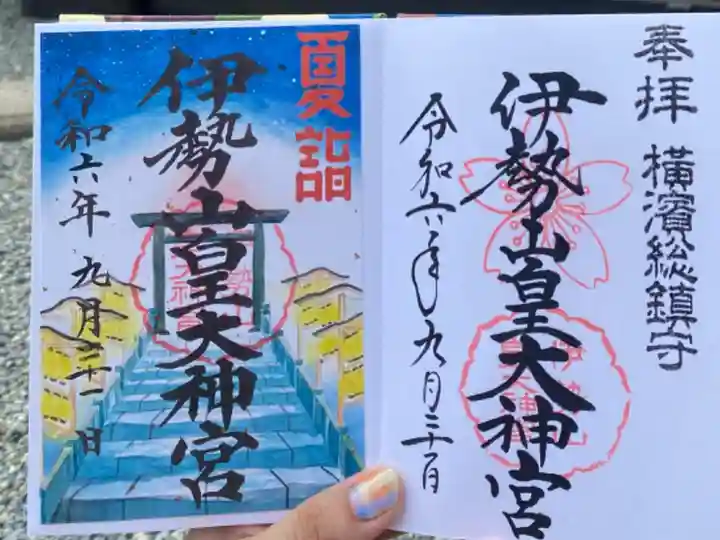 奉拝
横濱総鎮守
伊勢山皇大神宮
令和六年九月二十一日
夏詣
伊勢山皇大神宮
令和六年九月二十一日